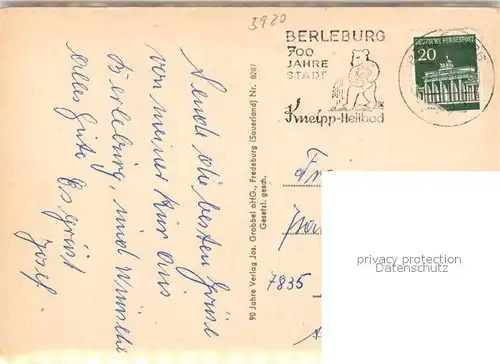 3920
BERLEBURG
700
JAHRE
STADT
Kneipp-Heilbad
DEUTSCHE BUNDESPOST
20
Sende die besten Grüße
von meiner Kur aus
Berleburg, und wünsche
alles Gute Es grüßt
Josef.
90 Jahre Verlag Jos. Grobbel oHG., Fredeburg (Sauerland) Nr. 9267
Gesetzl. gesch.
7835
privacy protection
Datenschutz